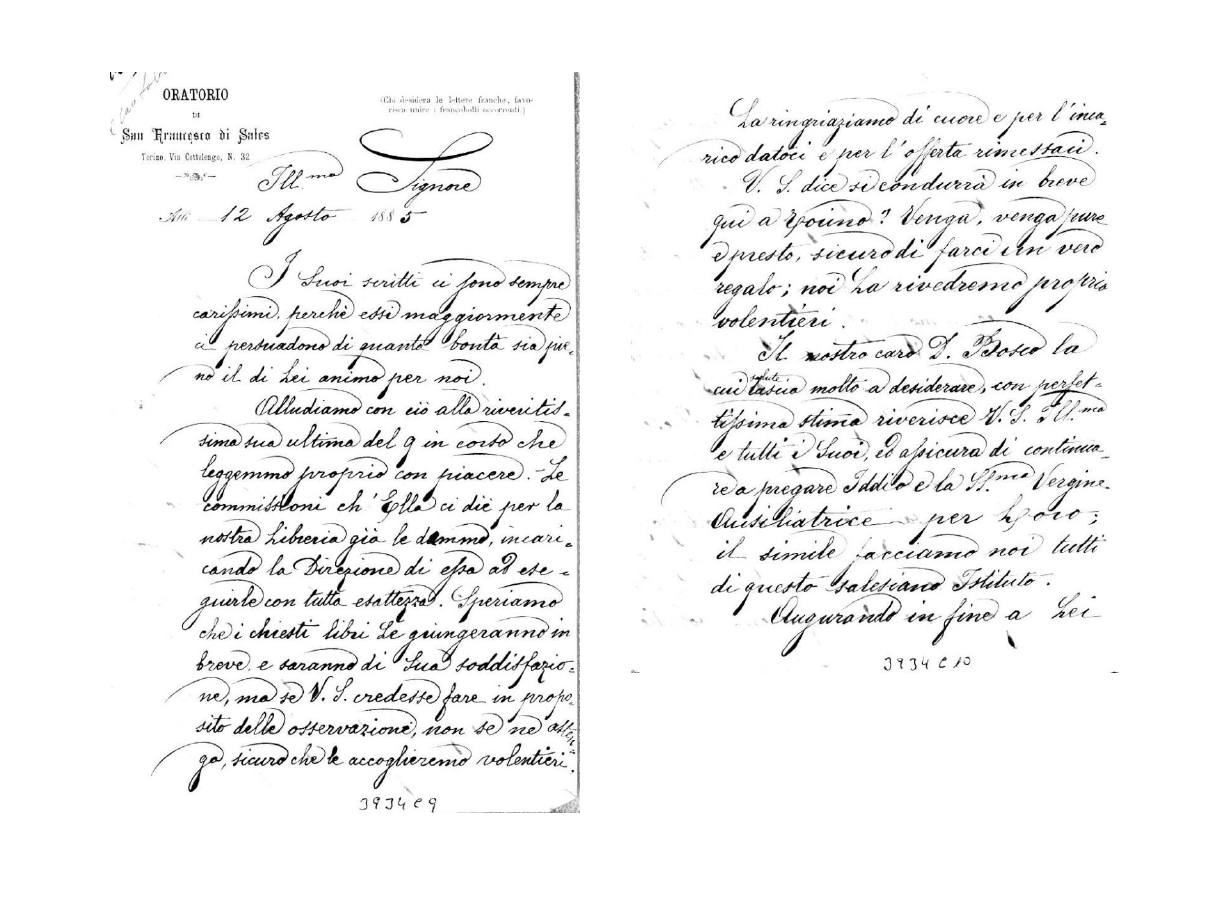 ORATORIO
DI
San Francesco di Sales
Torino, Via Cottolengo, N. 32
(Chi desidera le lettere franche, favo-
risca unire i francobolli occorrenti.)
Ill.ma Signore
Addì 12 Agosto 1885
I Suoi scritti ci sono sempre
carissimi, perchè essi maggiormente
ci persuadono di quanta bontà sia pie-
no il di Lei animo per noi.
Alludiamo con ciò alla riveritis-
sima sua ultima del 9 in corso che
leggemmo proprio con piacere. - Le
commissioni ch' Ella ci diè per la
nostra Libreria già le dammo, incari-
cando la Direzione di essa ad ese-
guirle con tutta esattezza. Speriamo
che i chiesti libri Le giungeranno in
breve e saranno di Sua soddisfazio-
ne, ma se V. S. credesse fare in propo-
sito delle osservazioni, non se ne asten-
ga, sicuro che le accoglieremo volentieri.
3934 C 9
La ringriaziamo di cuore e per l'inca-
rico datoci e per l'offerta rimessaci.
V. S. dice si condurrà in breve
qui a Torino? Venga, venga pure
e presto, sicuro di farci un vero
regalo; noi La rivedremo proprio
volentieri.
Il nostro caro D. Bosco la
cui salute lascia molto a desiderare, con perfet-
tissima stima riverisce V. S. Ill.ma
e tutti i Suoi, ed assicura di continua-
re a pregare Iddio e la SS.ma Vergine
Ausiliatrice per Loro;
il simile facciamo noi tutti
di questo salesiano Istituto.
Augurando in fine a Lei
3934 C 10